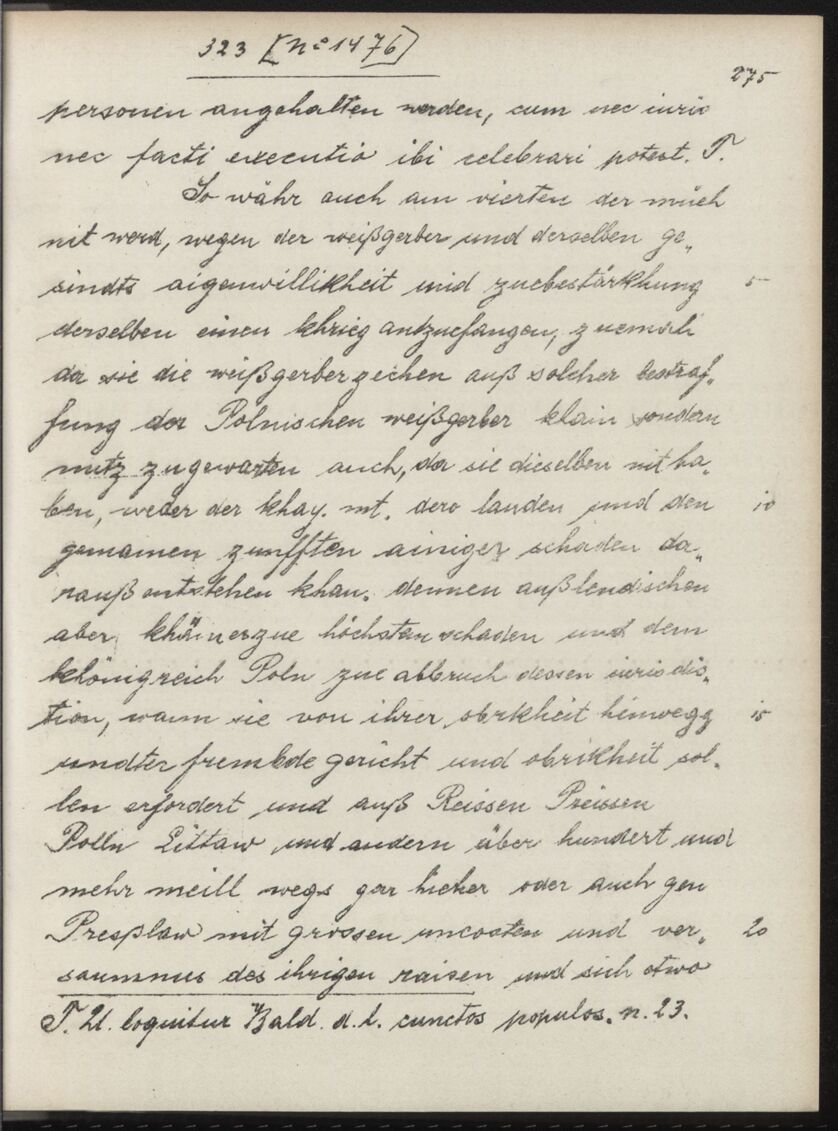 323 [No 1476]
275
personen angehalten werden, cum nec iuris
nec facti executio ibi celebrari potest. T.
So währ auch am vierten der müeh
nit werd, wegen der weißgerber und derselben ge„
sindts aigenwillikheit und zuebestärkhung
5
derselben einen khrieg antzuefangen, zuemahl
da sie die weißgerberzechen auß solcher bestraf„
fung der Polnischen weißgerber klain sondern
nutz zugewarten auch, da sie dieselben nit ha„
ben, weder der khay. mt. dero landen und den
10
gemainen zunfften ainiger schaden da„
rauß entstehen khan. dennen außlendischen
aber khäinerzue höchsten schaden und dem
khönigreich Poln zue abbruch dessen iurisdic„
tion, wann sie von ihrer obrkheit hinwegg
15
undter frembde gericht und obrikheit sol„
len erfordert und auß Reissen Preissen
Polln Littaw und andern über hundert und
mehr meill wegs gar hieher oder auch gen
Presßlaw mit grossen uncosten und ver„
20
saumnus des ihrigen raisen und sich etwo
T. Ut loquitur Bald. d. l. cunctos populos. n. 23.